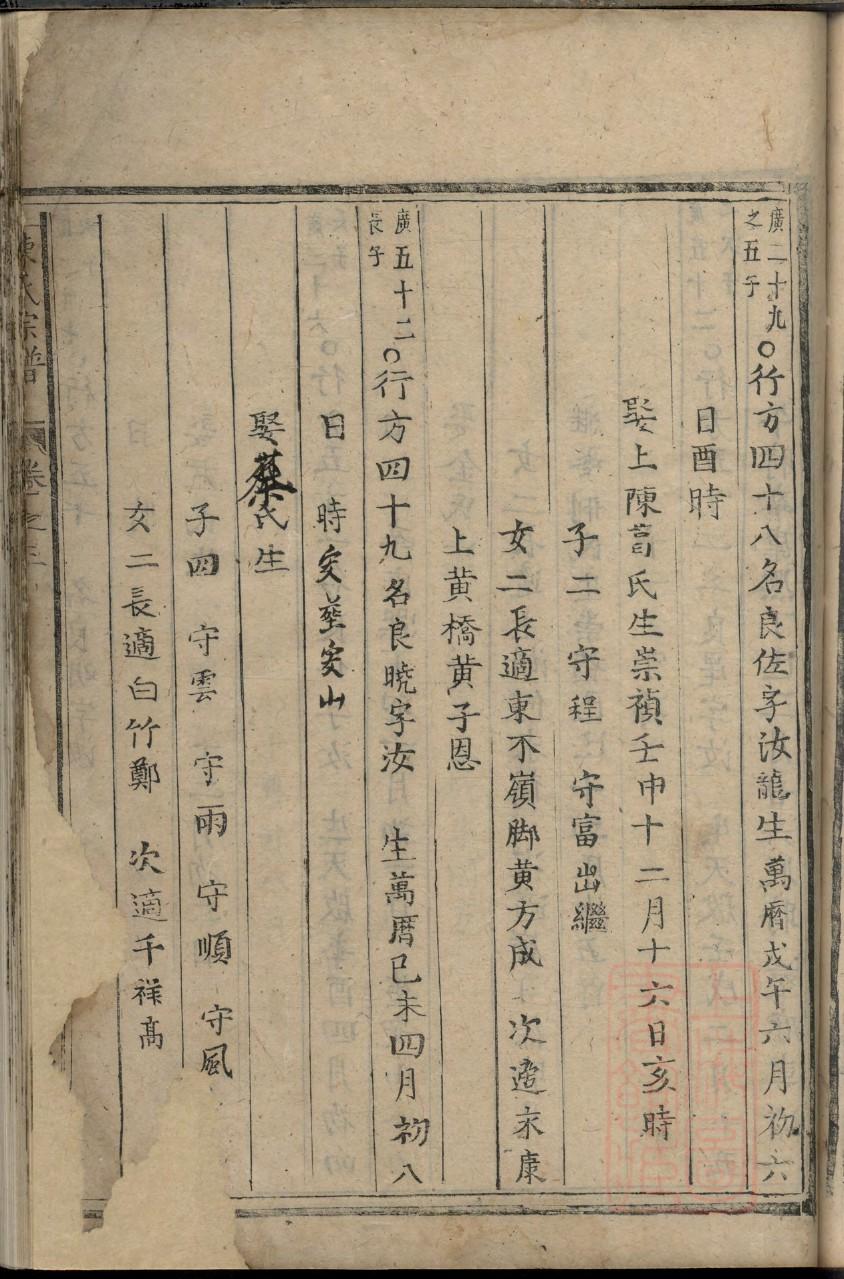 廣二十九
之五子
○行方四十八名良佐字汝龍生萬曆戊午六月初六
日酉時
娶上陳葛氏生崇禎壬申十二月十六日亥時
子二 守程 守富出繼
女二長適東不嶺脚黄方成 次適永康
上黄橋黄子恩
廣五十二
長子
○行方四十九名良曉字汝 生萬曆己未四月初八
日 時安葬安山
娶蔡氏生
子四 守雲 守雨 守順 守風
女二長適白竹鄭 次適千祥高
陳氏宗譜 卷之三